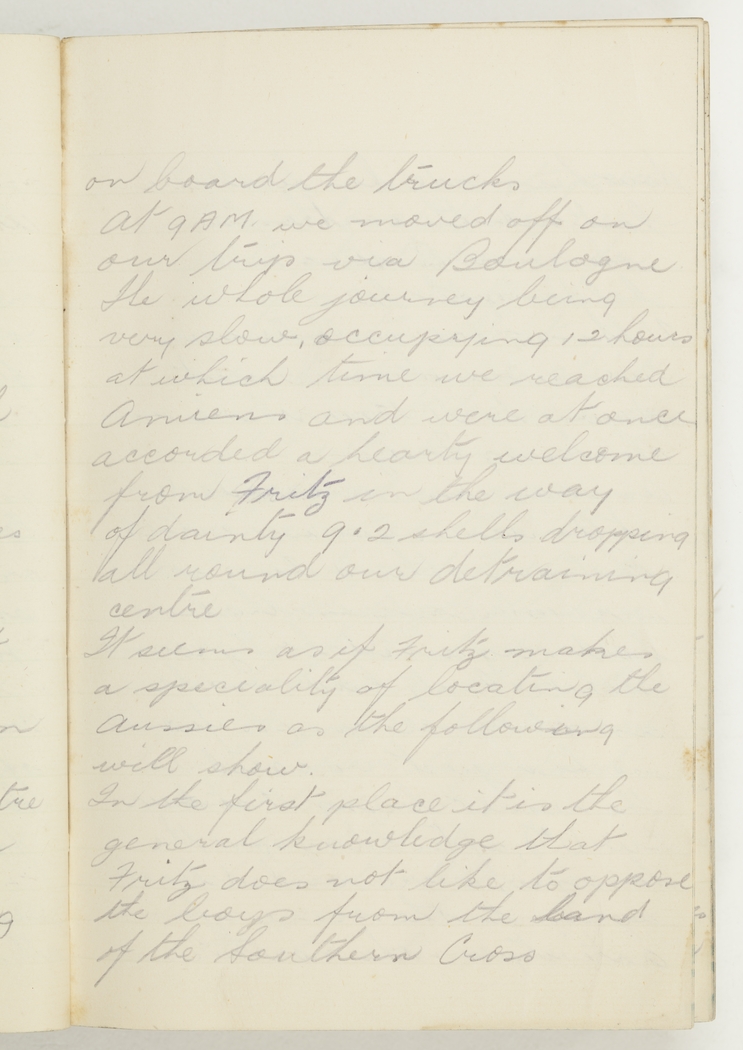 on board the trucks
At 9 AM. we moved off on
our trip via Boulogne
The whole journey being
very slow, occupying 12 hours
at which time we reached
Amiens and were at once
accorded a hearty welcome
from Fritz in the way
of dainty 9.2 shells dropping
all round our detraining
centre
It seems as if Fritz makes
a speciality of locating the
Aussies as the following
will show.
In the first place it is the
general knowledge that
Fritz does not like to oppose
the boys from the land
of the Southern Cross